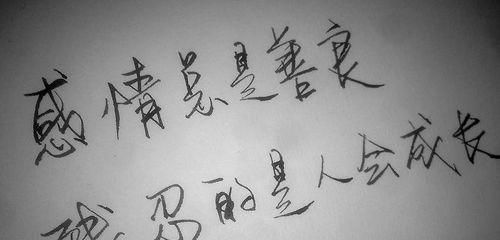 感情总是善衷
残忍的是人会成长